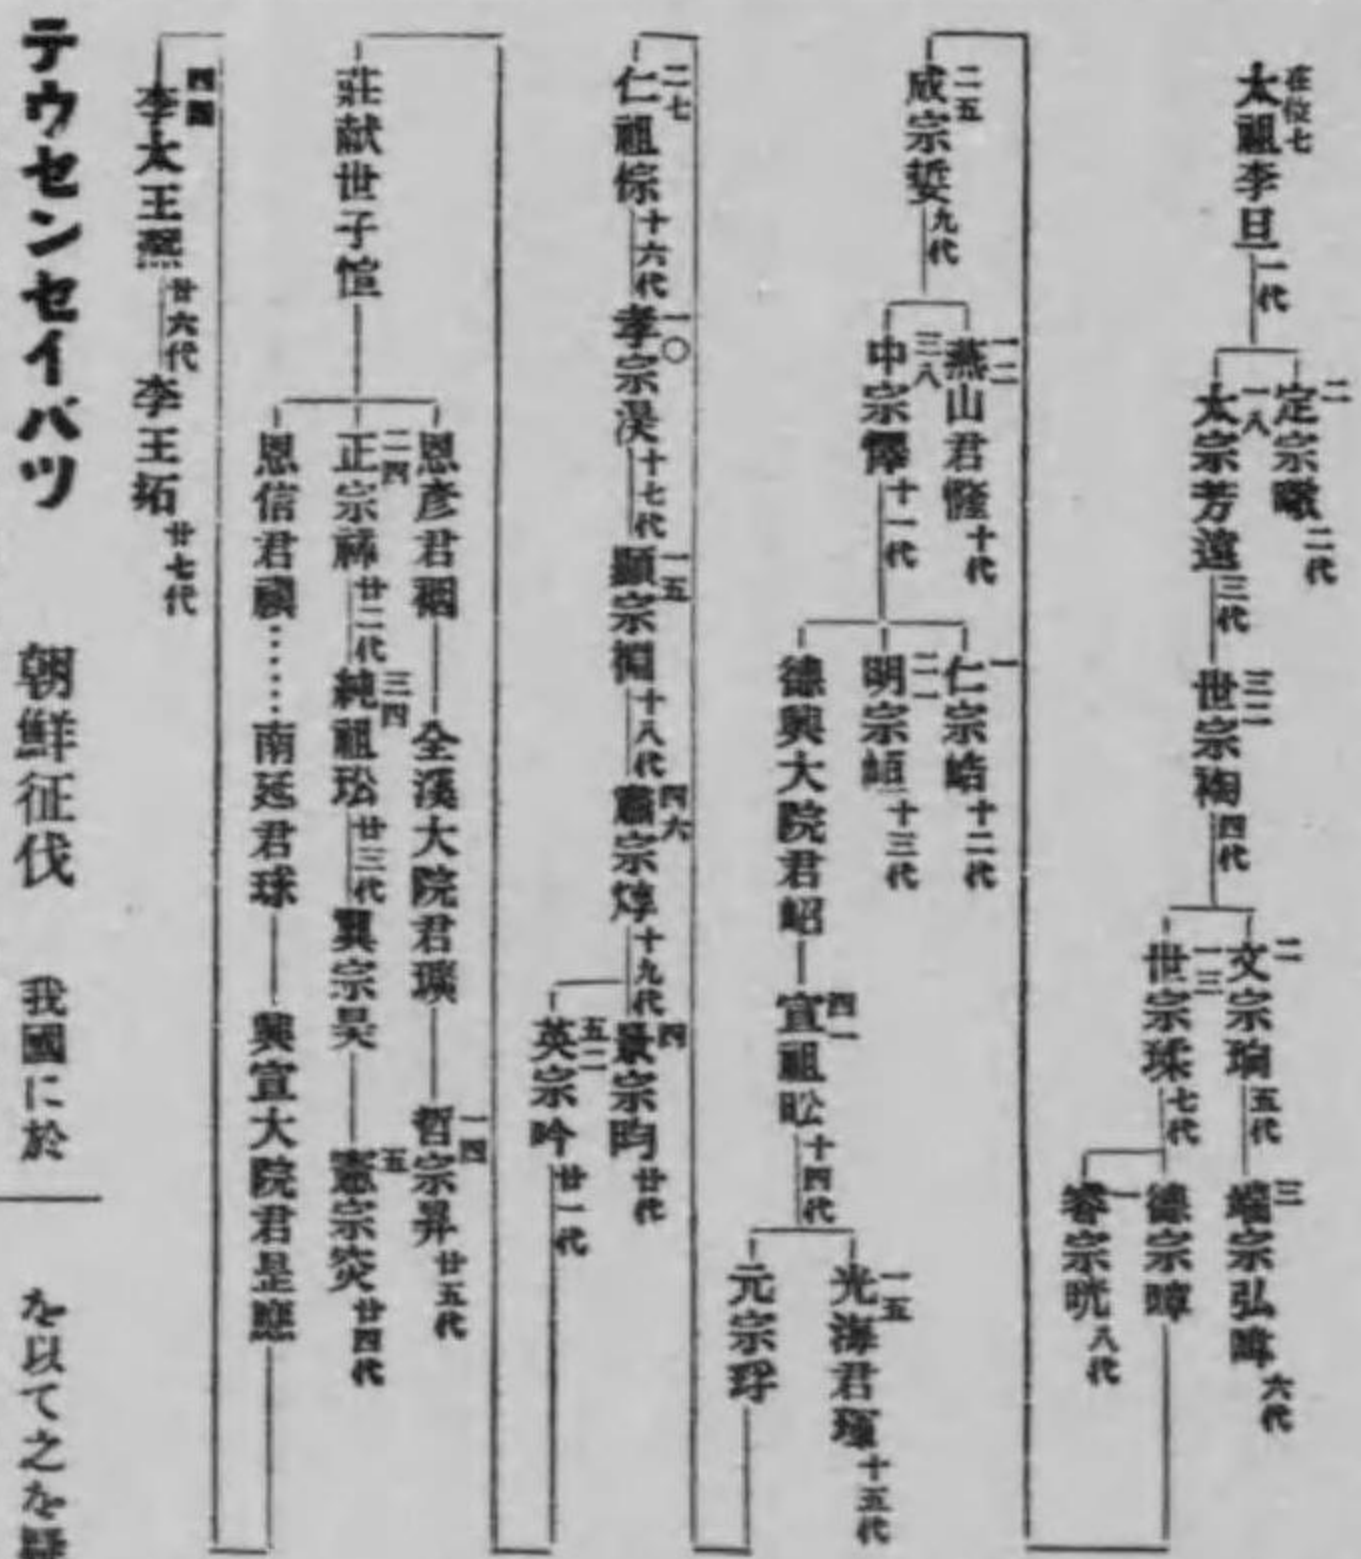 在位七
太祖李旦 一代
二
定宗曔 二代
一八
太宗芳遠 三代
三二
世宗祹 四代
二
文宗珦 五代
三
端宗弘暐 六代
一三
世宗瑈 七代
德宗暲
一
睿宗晄 八代
二五
成宗娎 九代
一二
燕山君㦕 十代
三八
中宗懌 十一代
一
仁宗峼 十二代
二二
明宗峘 十三代
德興大院君岹
四一
宣祖昖 十四代
一五
光海君琿 十五代
元宗琈
二七
仁祖倧 十六代
一〇
孝宗淏 十七代
一五
顯宗棩 十八代
四六
肅宗焞 十九代
四
景宗昀 廿代
五二
英宗昑 廿一代
莊献世子愃
恩彦君裀
全溪大院君㼅
一四
哲宗昇 廿五代
二四
正宗祘 廿二代
三四
純祖玜 廿三代
翼宗旲
五
憲宗奐 廿四代
恩信君禛
南延君球
興宣大院君昰應
四四
李太王㷩 廿六代
李王坧 廿七代
テウセンセイバツ 朝鮮征伐 我國に於
を以て之を